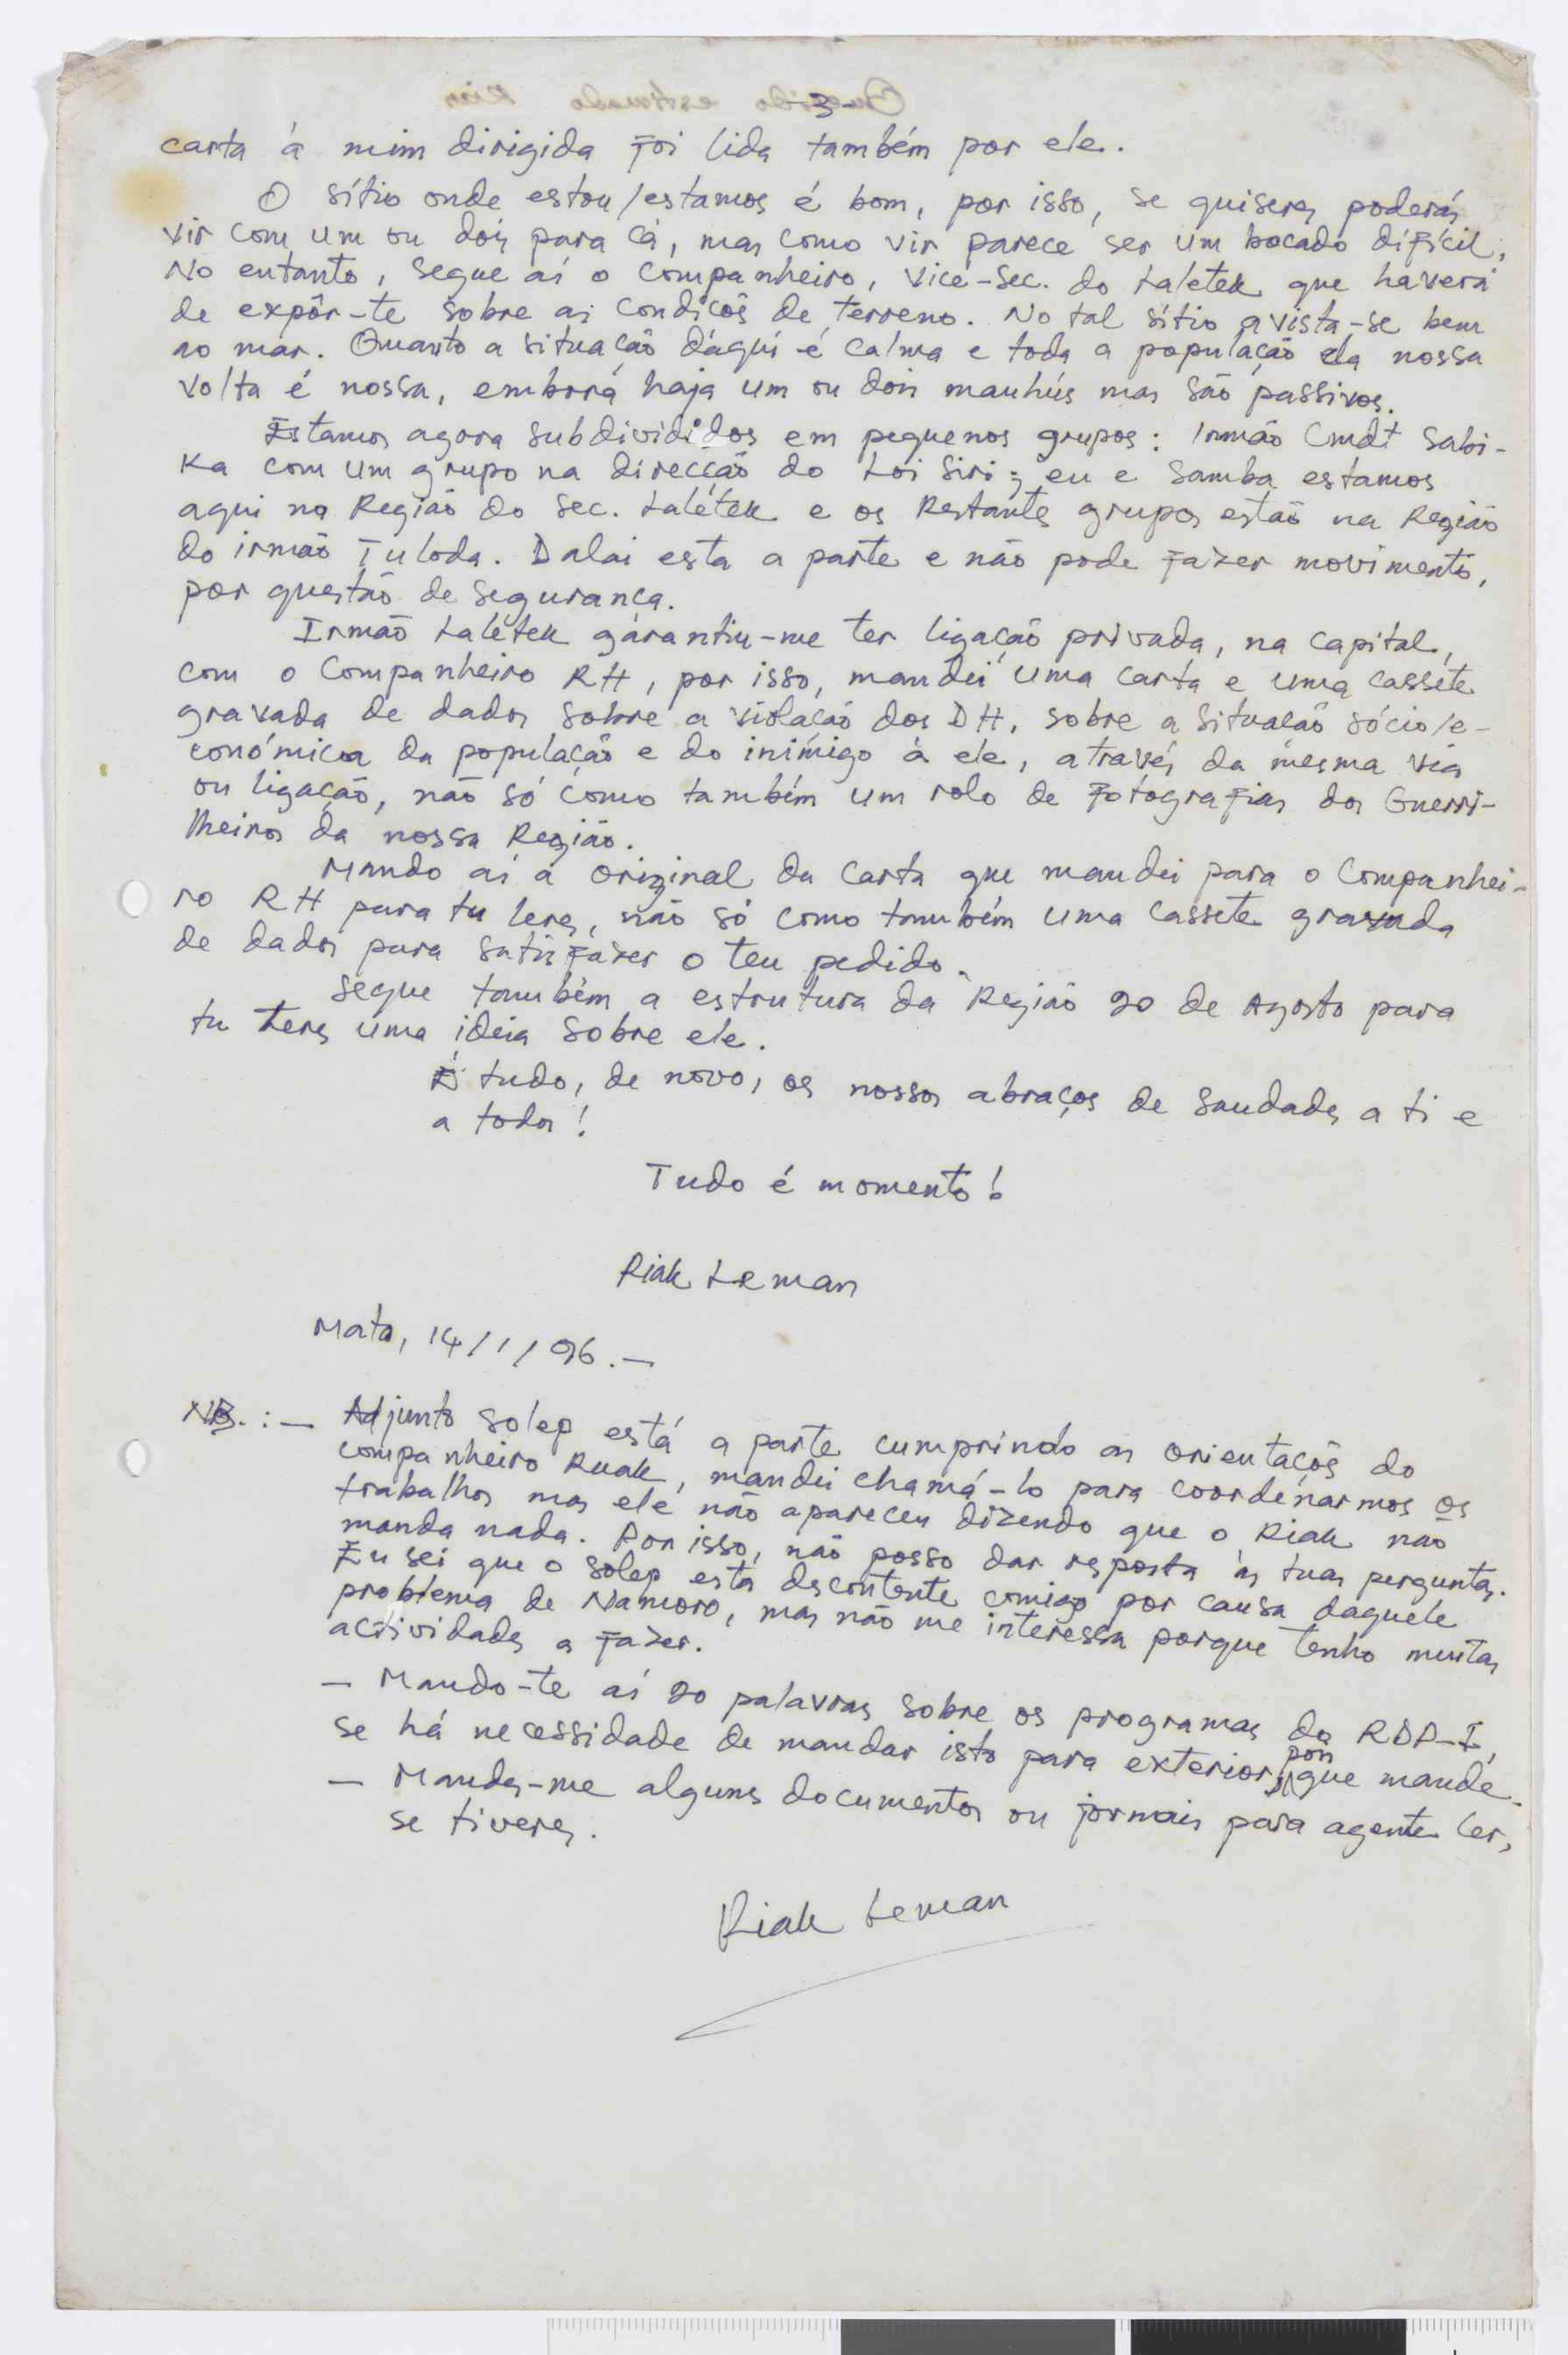 -3-
carta á mim dirigida foi lida também por ele.
O sítio onde estou/estamos é bom, por isso, se quiseres poderás
vir com um ou dois para cá, mas como vir parece ser um bocado difícil,
No entanto, segue aí o companheiro, vice-sec. do Laletek que haverá
de expôr-te sobre as condicõs de terreno. No tal sítio avista-se bem
ao mar. Quanto a situação dáqui é calma e toda a população da nossa
volta é nossa, embora haja um ou dois mauhús mas são passivos.
Estamos agora subdivididos em pequenos grupos: Irmão Cmdt Sabi-
ka com um grupo na direcção do Loi Siri; eu e Samba estamos
aqui na Região do Sec. Laletek e os Restantes grupos estão na Região
do irmão Tuloda. Dalai esta a parte e não pode fazer movimento,
por questão de segurança.
Irmão Laletek garantiu-me ter ligação privada, na capital,
com o Companheiro RH, por isso, mandei uma carta e uma cassete
gravada de dados sobre a violação dos DH, sobre a situação sócio/e-
conómica da população e do inimigo à ele, através da mesma via
ou ligação, não só como também um rolo de fotografias dos Guerri-
lheiros da nossa Região.
Mando aí a original da carta que mandei para o Companhei-
ro RH para tu leres, não só como também uma cassete gravada
de dados para satisfazer o teu pedido.
Segue também a estrutura da Região 20 de Agosto para
tu teres uma ideia sobre ele.
É tudo, de novo, os nossos abraços de saudades a ti e
a todos!
Tudo é momento!
Riak Leman
Mato, 14/1/96.—
NB.:— Adjunto Solep está a parte cumprindo as orientaçõs do
companheiro Ruak, mandei chamá-lo para coordenarmos os
trabalhos mas ele não apareceu dizendo que o Riak não
manda nada. Por isso, não posso dar resposta às tuas perguntas.
Eu sei que o Solep está descontente comigo por causa daquele
problema de Namoro, mas não me interessa porque tenho muitas
actividades a fazer.
— Mando-te aí 20 palavras sobre os programas da RDP-I,
se há necessidade de mandar isto para exterior, pois
que mande.
— Mandes-me alguns documentos ou jornais para agente ler,
se tiveres.
Riak Leman